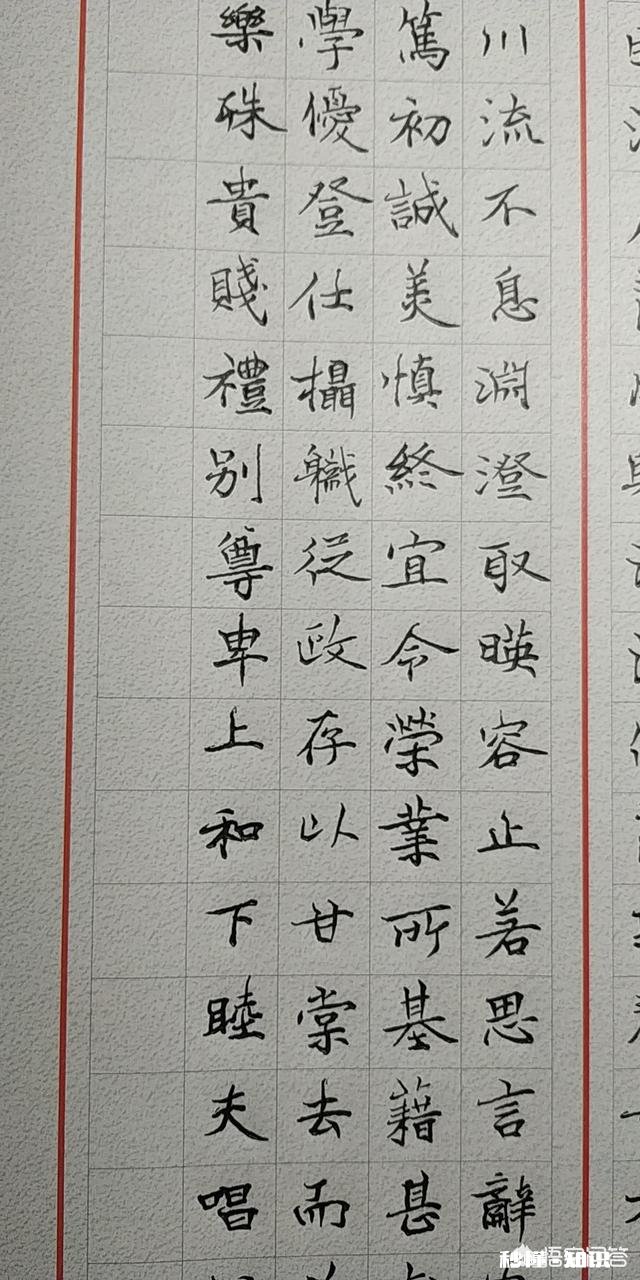 川流不息淵澄取暎容止若思言辭
篤初誠美慎終宜令榮業所基藉甚
學優登仕攝職從政存以甘棠去而
樂殊貴賤禮别尊卑上和下睦夫唱
悟空问答
秒懂知识